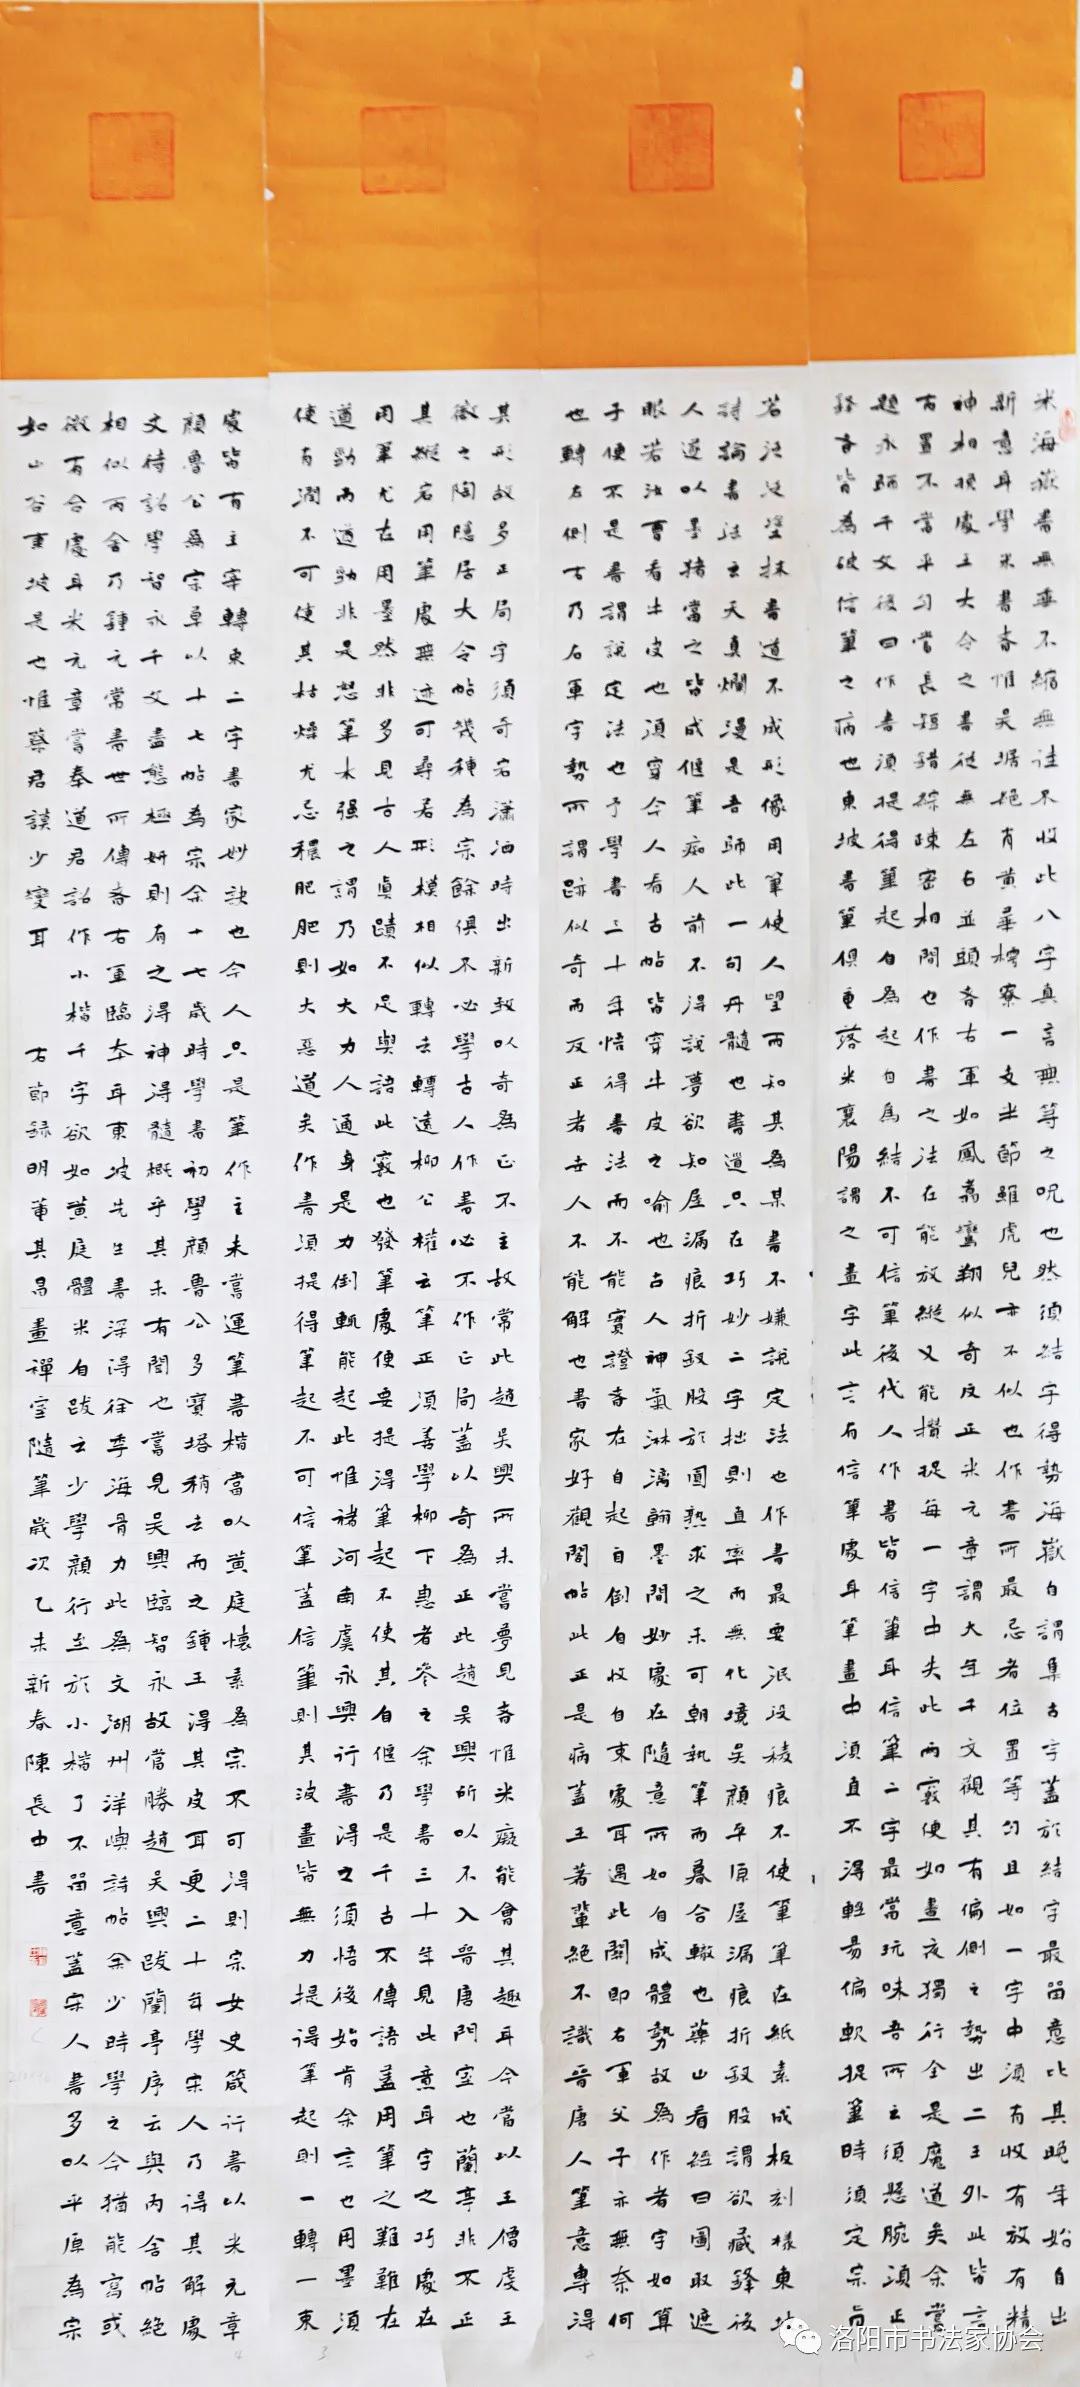 米海嶽書無垂不縮無往不收此八字真言無等之呪也然須結字得勢海嶽自謂集古字蓋於結字最留意比其晚年始自出
新意耳學米書者惟吳琚絕肖黃華樗寮一支半節雖虎兒亦不似也作書所最忌者位置等勻且如一字中須有收有放有精
神相挽處王大令之書從無左右並頭者右軍如鳳翥鸞翔似奇反正米元章謂大年千文觀其有偏側之勢出二王外此皆言
布置不當平勻當長短錯綜疎密相間也作書之法在能放縱又能攢捉每一字中失此兩竅便如晝夜獨行全是魔道矣余嘗
題永師千文後曰作書須提得筆起自為起自為結不可信筆後代人作書皆信筆耳信筆二字最當玩味吾所云須懸腕須正
鋒者皆為破信筆之病也東坡書筆俱重落米襄陽謂之畫字此言有信筆處耳筆畫中須直不得輕易偏軟捉筆時須定宗旨
若泛泛塗抹書道不成形像用筆使人望而知其為某書不嫌說定法也作書最要泯沒稜痕不使筆筆在紙素成板刻樣東坡
詩論書法云天真爛漫是吾師此一句丹髓也書道只在巧妙二字拙則直率而無化境矣顏平原屋漏痕折釵股謂欲藏鋒後
人遂以墨猪當之皆成偃筆痴人前不得說夢欲知屋漏痕折釵股於圓熟求之未可朝執筆而暮合轍也藥山看經曰圖取遮
眼若汝曹看牛皮也須穿今人看古帖皆穿牛皮之喻也古人神氣淋漓翰墨間妙處在隨意所如自成體勢故為作者字如算
子便不是書謂說定法也予學書三十年悟得書法而不能實證者在自起自倒自收自束處耳過此關即右軍父子亦無奈何
也轉左側右乃右軍字勢所謂跡似奇而反正者世人不能解也書家好觀閣帖此正是病蓋王著輩絕不識晉唐人筆意專得
其形故多正局字須奇宕瀟洒時出新致以奇為正不主故常此趙吳興所未嘗夢見者惟米癡能會其趣耳今當以王僧虔王
徽之陶隱居大令帖幾種為宗餘俱不必學古人作書必不作正局蓋以奇為正此趙吳興所以不入晉唐門室也蘭亭非不正
其縱宕用筆處無迹可尋若形模相似轉去轉遠柳公權云筆正須善學柳下惠者參之余學書三十年見此意耳字之巧處在
用筆尤在用墨然非多見古人真蹟不足與語此竅也發筆處便要提得筆起不使其自偃乃是千古不傳語蓋用筆之難難在
遒勁而遒勁非是怒筆木强之謂乃如大力人通身是力倒輒能起此惟褚河南虞永興行書得之須悟後始肯余言也用墨須
使有潤不可使其枯燥尤忌穠肥肥則大惡道矣作書須提得筆起不可信筆蓋信筆則其波畫皆無力提得筆起則一轉一束
處皆有主宰轉束二字書家妙訣也今人只是筆作主未嘗運筆書楷當以黃庭懷素為宗不可得則宗女史箴行書以米元章
顏魯公為宗草以十七帖為宗余十七歲時學書初學顏魯公多寶塔稍去而之鍾王得其皮耳更二十年學宋人乃得其解處
文待詔學智永千文盡態極妍則有之得神得髓概乎其未有聞也嘗見吳興臨智永故當勝趙吳興跋蘭亭序云與丙舍帖絕
相似丙舍乃鍾元常書世所傳者右軍臨本耳東坡先生書深得徐季海骨力此為文湖州洋嶼詩帖余少時學之今猶能寫或
微有合處耳米元章嘗奉道君詔作小楷千字欲如黃庭體米自跋云少學顏行至於小楷了不留意蓋宋人書多以平原為宗
如山谷東坡是也惟蔡君謨少變耳 右節錄明董其昌畫禪室隨筆歲次乙未新春陳長中書
洛阳市书法家协会